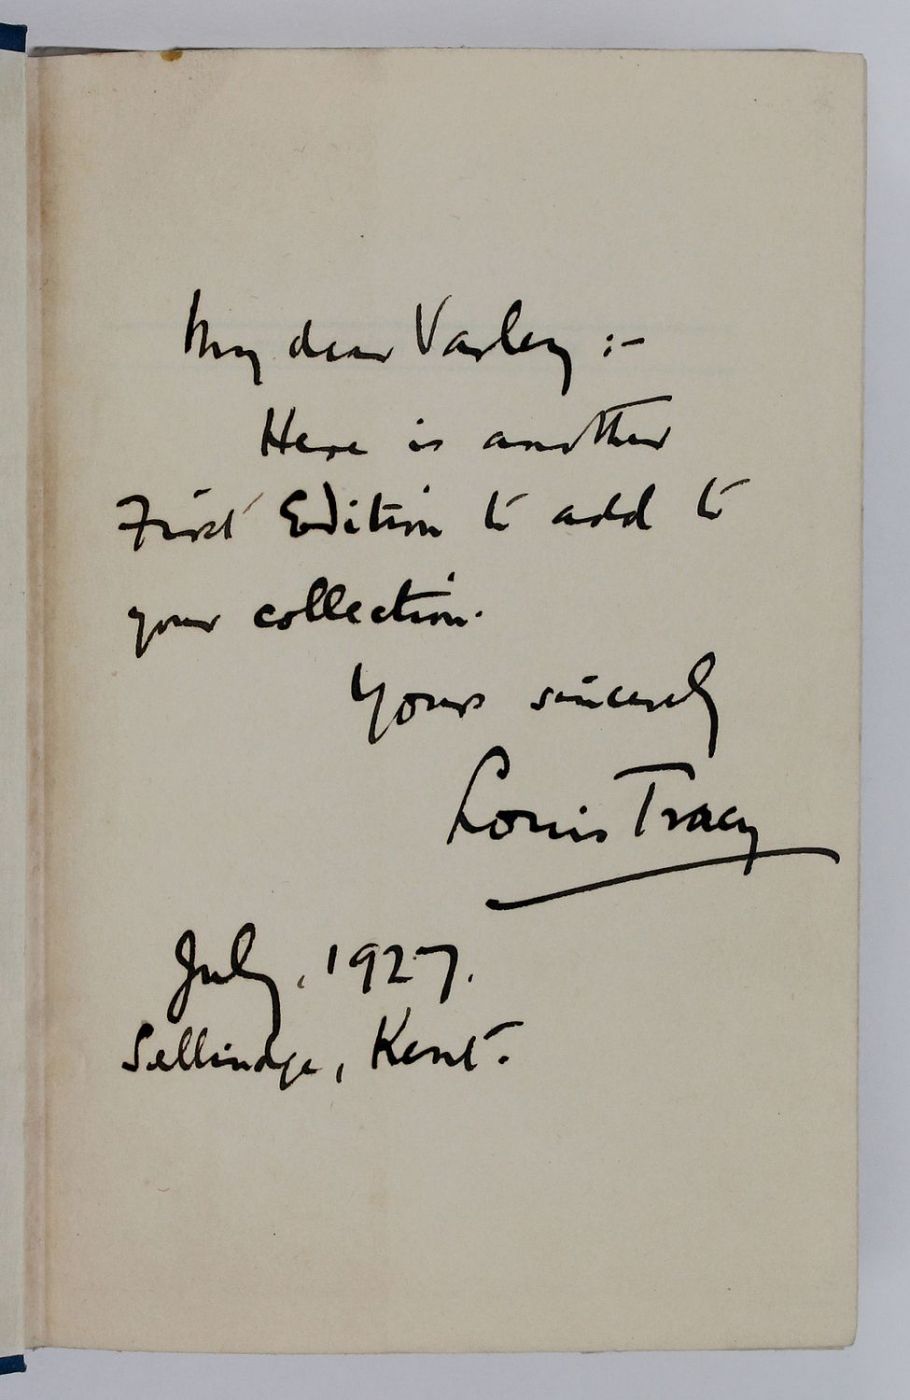 My dear Varley :-
Here is another
First Edition to add to
your collection.
Yours sincerely
Louis Tracy
July, 1927.
Sellindge, Kent.